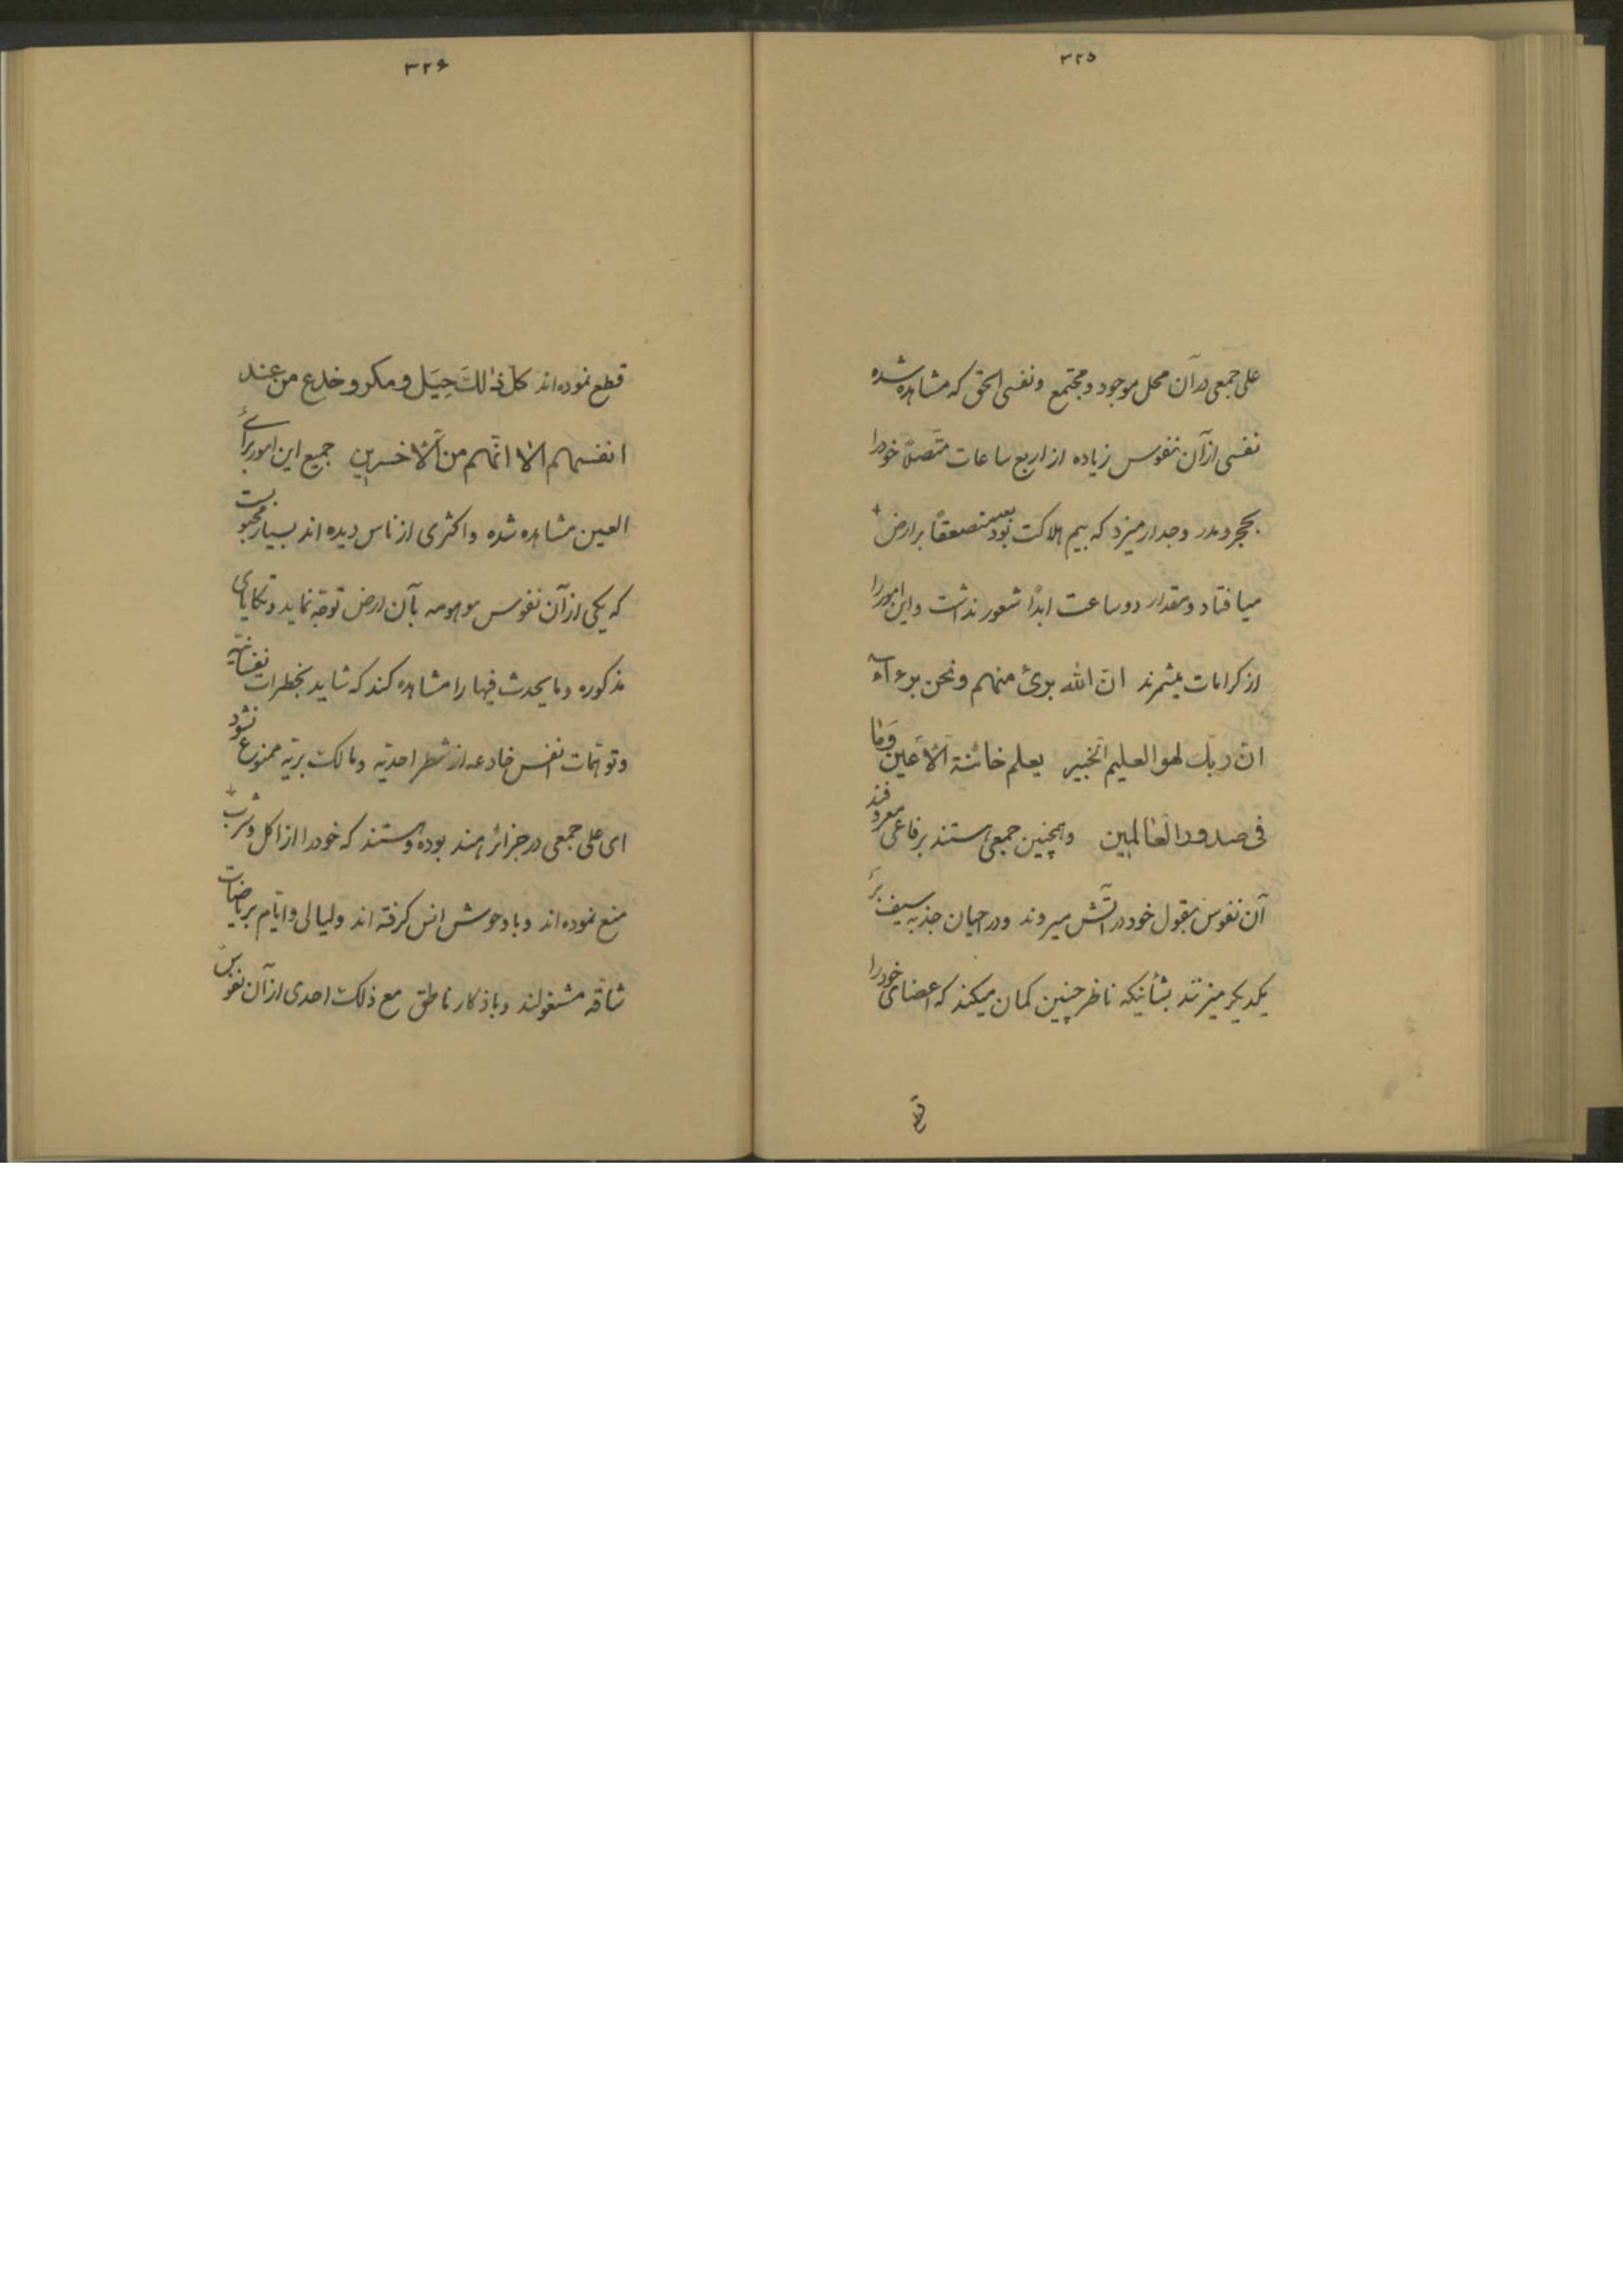 ۳۲۵
علی جمعی در آن محل موجود و مجتمع و نفسی الحق که مشاهده شده
نفسی از آن نفوس زیاده از اربع ساعات متّصلاً خود را
بحجر و مدر و جدار میزد که بیم هلاکت بود بعد منصعقاً بر ارض
میافتاد و مقدار دو ساعت ابداً شعور نداشت و این امور را
از کرامات میشمرند انّ الله بریٔ منهم و نحن برءآء
انّ ربّک لهو العلیم الخبیر یعلم خائنة الأعین وما
فی صدور العالمین و همچنین جمعی هستند برفاعی معروفند
آن نفوس بقول خود در آتش میروند و در احیان جذبه سیف بر
یکدیگر میزنند بشأنیکه ناظر چنین گمان میکند که اعضای خود را
قطع
۳۲۶
قطع نموده‌اند کلّ ذالکَ حِیَل و مکر و خدع من عند
انفسهم الا انّهم من الأخسرین جمیع این امور برأی
العین مشاهده شده و اکثری از ناس دیده‌اند بسیار محبوبست
که یکی از آن نفوس موهومه بآن ارض توجّه نماید و تکایای
مذکوره و ما یحدث فیها را مشاهده کند که شاید بخطرات نفسانیّه
و توهّمات انفس خادعه از شطر احدیّه و مالک بریّه ممنوع نشود
ای علی جمعی در جزائر هند بوده و هستند که خود را از اکل و شرب
منع نموده‌اند و با وحوش انس گرفته‌اند و لیالی و ایّام بریاضات
شاقّه مشغولند و باذکار ناطق مع ذلک احدی از آن نفوس